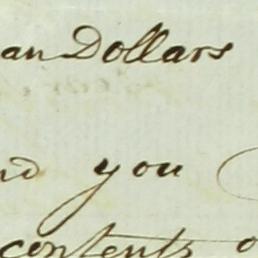 an Dollars
nd you
contents o